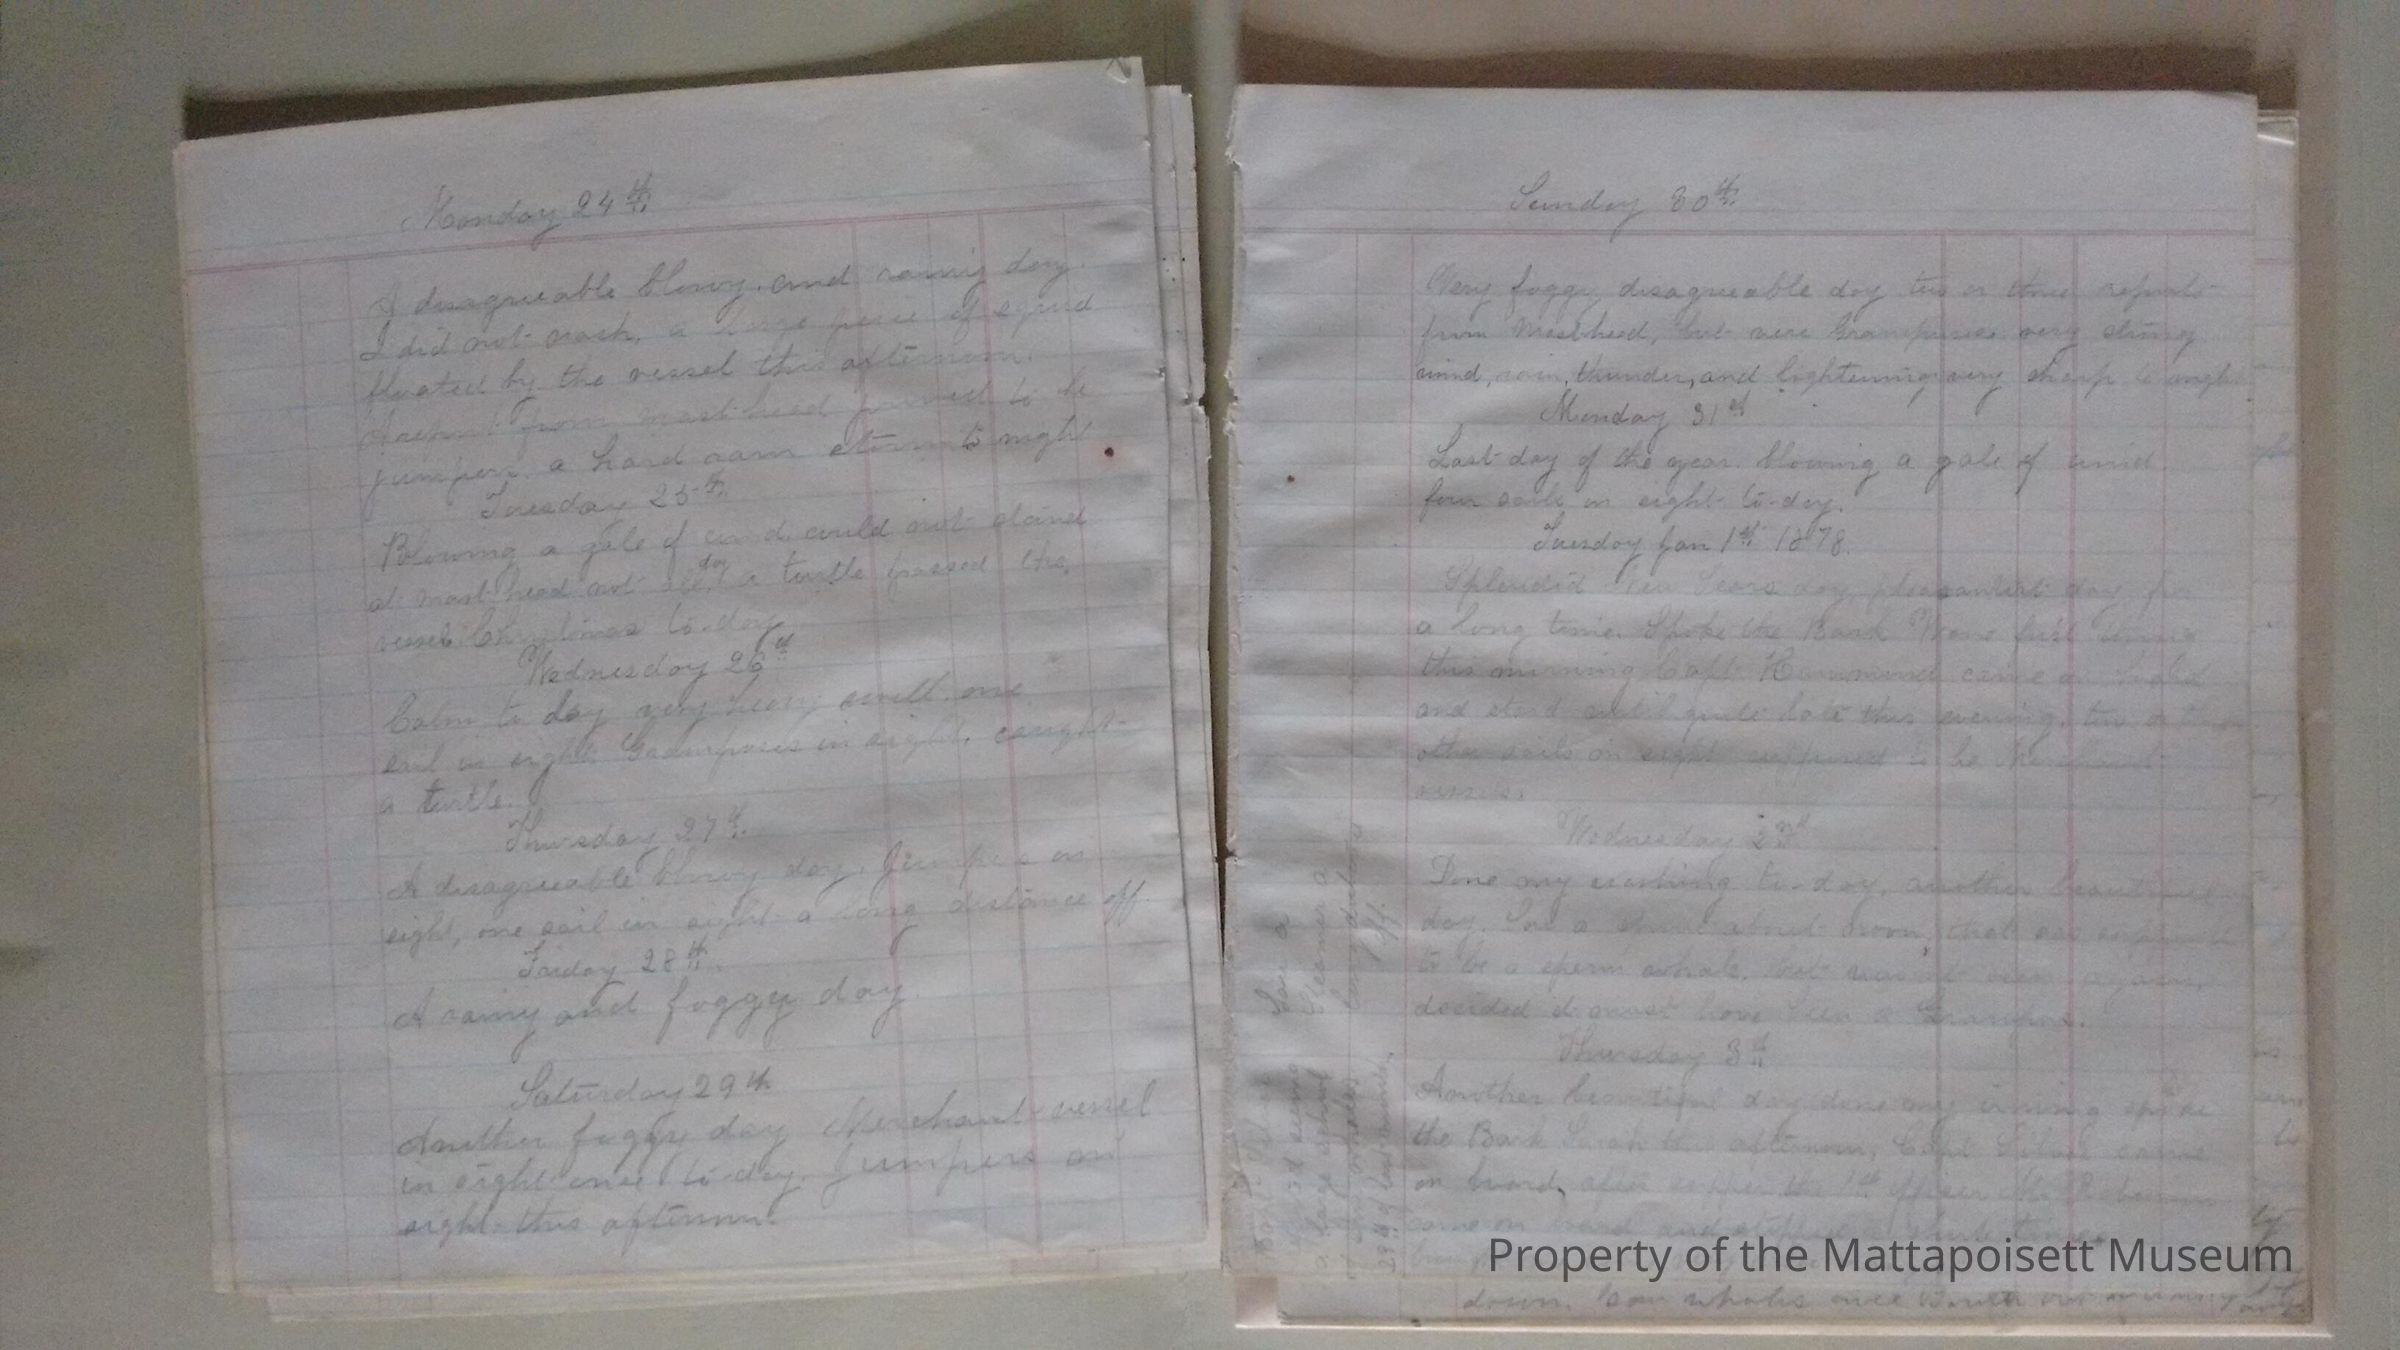 Monday 24th
A disagreeable blowy and rainy day.
I did not wash, a large piece of squid
floated by the vessel this afternoon.
A report from mast-head proved to be
jumpers. a hard rain storm to night
Tuesday 25th
Blowing a gale of wind could not stand
at mast-head not all day a turtle passed the
vessel Christmas to-day
Wednesday 26th
Calm to day very heavy swell. one
sail in sight Grampuses in sight. caught
a turtle.
Thursday 27th.
A disagreeable blowy day. Jumpers in
sight, one sail in sight a long distance off.
Friday 28th.
A rainy and foggy day
Saturday 29th
Another foggy day Merchant vessel
in sight once to-day. Jumpers in
sight this afternoon.
Sunday 30th.
Very foggy disagreeable day two or three reports
from Masthead, but were Grampuses very strong
wind, rain, thunder, and lightening very sharp to night
Monday 31st
Last day of the year. blowing a gale of wind
four sails in sight to-day.
Tuesday Jan 1st 1878.
Splendid New Years day, pleasantest day for
a long time. Spoke the Bark first thing
this morning Capt Hammond came on board
and staid until quite late this evening, two or three
other sails in sight supposed to be Merchant
vessels.
Wednesday 2nd
Done my washing to-day, another beautiful
day. Saw a spout about noon, that was supposed
to be a sperm whale. but was not seen again,
decided it must have been a Grampus.
Thursday 3d
Another beautiful day done my ironing spoke
the Bark Sarah this afternoon, Capt came
on board, after supper the 1st officer Mr
came on board and stopped a short time
down. Saw whales once
Saw a
Steamer a
long distance
off.
a large school
Property of the Mattapoisett Museum